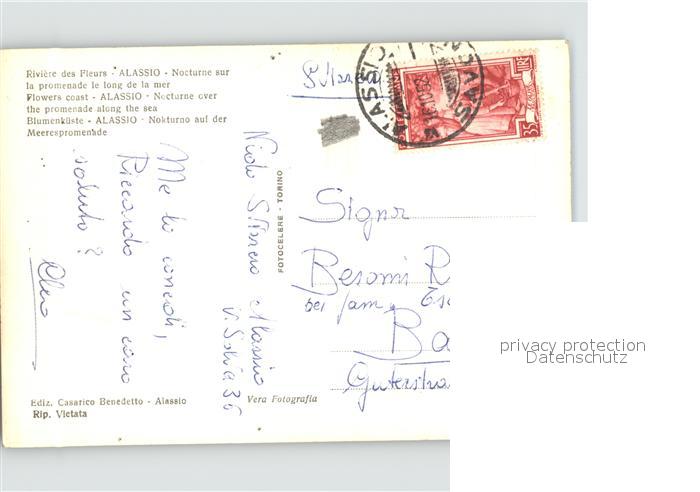 Rivière des Fleurs - ALASSIO - Nocturne sur
la promenade le long de la mer
Flowers coast - ALASSIO - Nocturne over
the promenade along the sea
Blumenküste - ALASSIO - Nokturno auf der
Meerespromenade
Me lo concedi,
Riccardo un caro
saluto?
Nido S. Marco Alassio
FOTOCELERE - TORINO
ALASSIO
SAVONA
35
LIRE
Signor
Besomi R
bei Fam.
Ba
Guterstra
privacy protection
Datenschutz
Ediz. Casarico Benedetto - Alassio
Rip. Vietata
Vera Fotografia